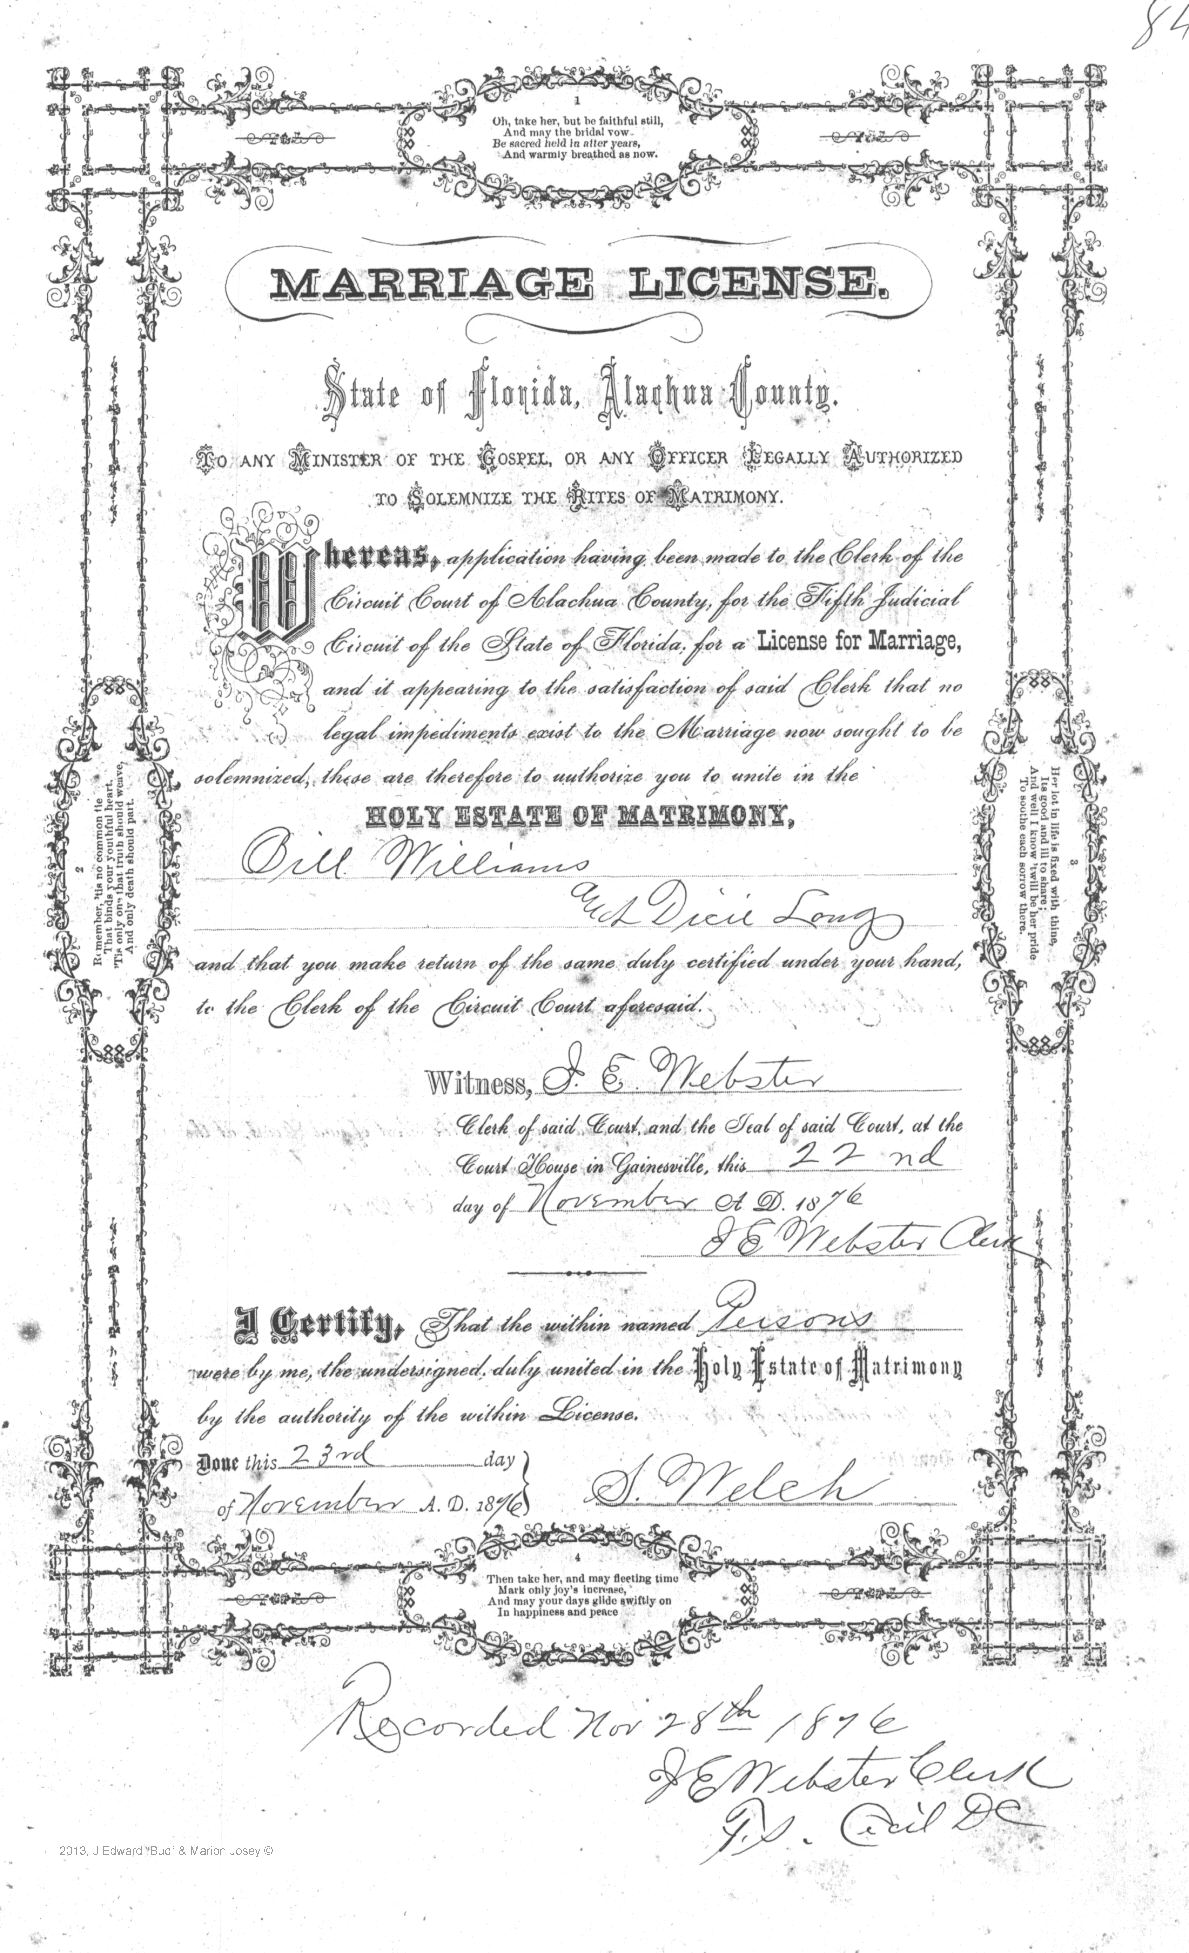 84
1
Oh, take her, but be faithful still,
And may the bridal vow
Be sacred held in after years,
And warmly breathed as now.
MARRIAGE LICENSE.
State of Florida, Alachua County.
TO ANY MINISTER OF THE GOSPEL, OR ANY OFFICER LEGALLY AUTHORIZED
TO SOLEMNIZE THE RITES OF MATRIMONY.
Whereas, application having been made to the Clerk of the
Circuit Court of Alachua County, for the Fifth Judicial
Circuit of the State of Florida, for a License for Marriage,
and it appearing to the satisfaction of said Clerk that no
legal impediments exist to the Marriage now sought to be
solemnized, these are therefore to authorize you to unite in the
HOLY ESTATE OF MATRIMONY,
Bill Williams
and Dicie Long
and that you make return of the same duly certified under your hand,
to the Clerk of the Circuit Court aforesaid.
2
Remember, 'tis no common tie
That binds your youthful heart,
'Tis only one that truth should weave,
And only death should part.
3
Her lot in life is fixed with thine,
Its good and ill to share;
And well I know 'twill be her pride
To soothe each sorrow there.
Witness, J. E. Webster
Clerk of said Court, and the Seal of said Court, at the
Court House in Gainesville, this 22nd
day of November A D. 1876
J E Webster Clerk
I Certify, That the within named Persons
were by me, the undersigned, duly united in the Holy Estate of Matrimony
by the authority of the within License.
Done this 23rd day
of November A. D. 1876
S. Welch
4
Then take her, and may fleeting time
Mark only joy's increase,
And may your days glide swiftly on
In happiness and peace
Recorded Nov 28th 1876
J E Webster Clerk
Cecil DC
2013, J Edward "Bud" & Marion Josey ©